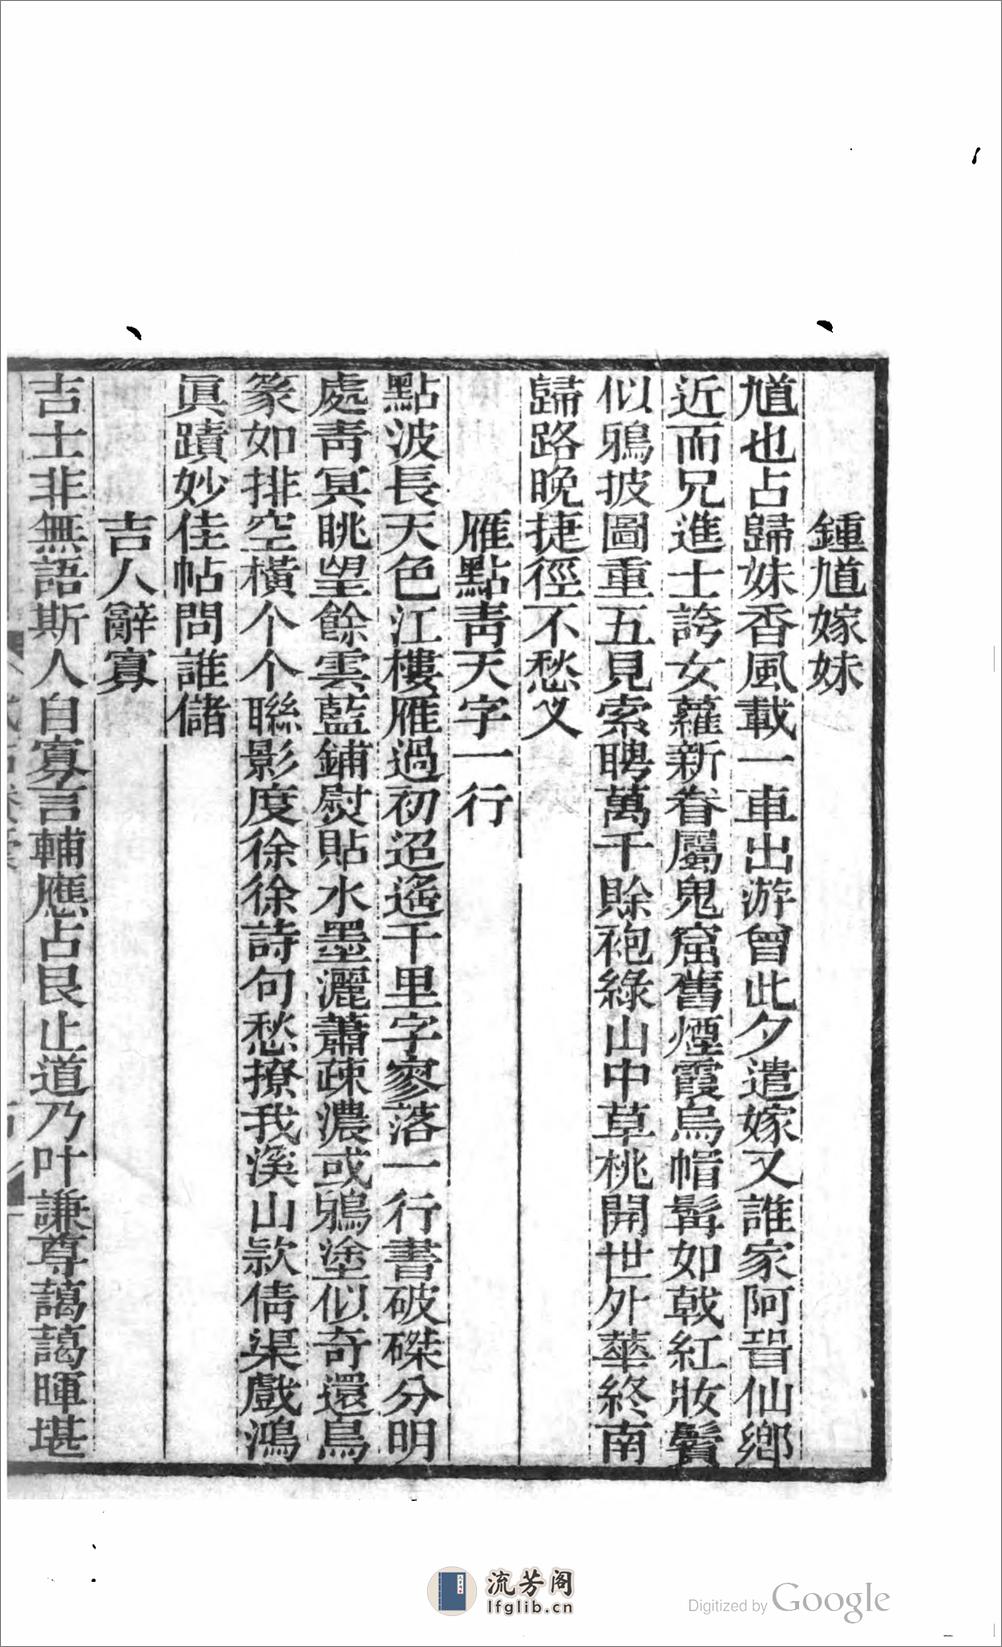 鍾馗嫁妹
馗也占歸妹香風載一車出游曾此夕遣嫁又誰家阿㫺仙鄉
近而兄進士誇女蘿新眷屬鬼窟舊煙霞烏帽髯如戟紅妝鬢
似鴉披圖重五見索聘萬千賒袍綠山中草桃開世外華終南
歸路晚捷徑不愁叉
雁點靑天字一行
點波長天色江樓雁過初迢遙千里字寥落一行書破磔分明
處靑冥眺望餘雲藍鋪熨貼水墨灑蕭疎濃或鴉塗似奇還鳥
篆如排空橫个个聯影度徐徐詩句愁撩我溪山款倩渠戲鴻
眞蹟妙佳帖問誰儲
吉人辭寡
吉士非無語斯人自寡言輔應占艮止道乃叶謙尊藹藹暉堪
流芳阁
lfglib.cn
Digitized by Google